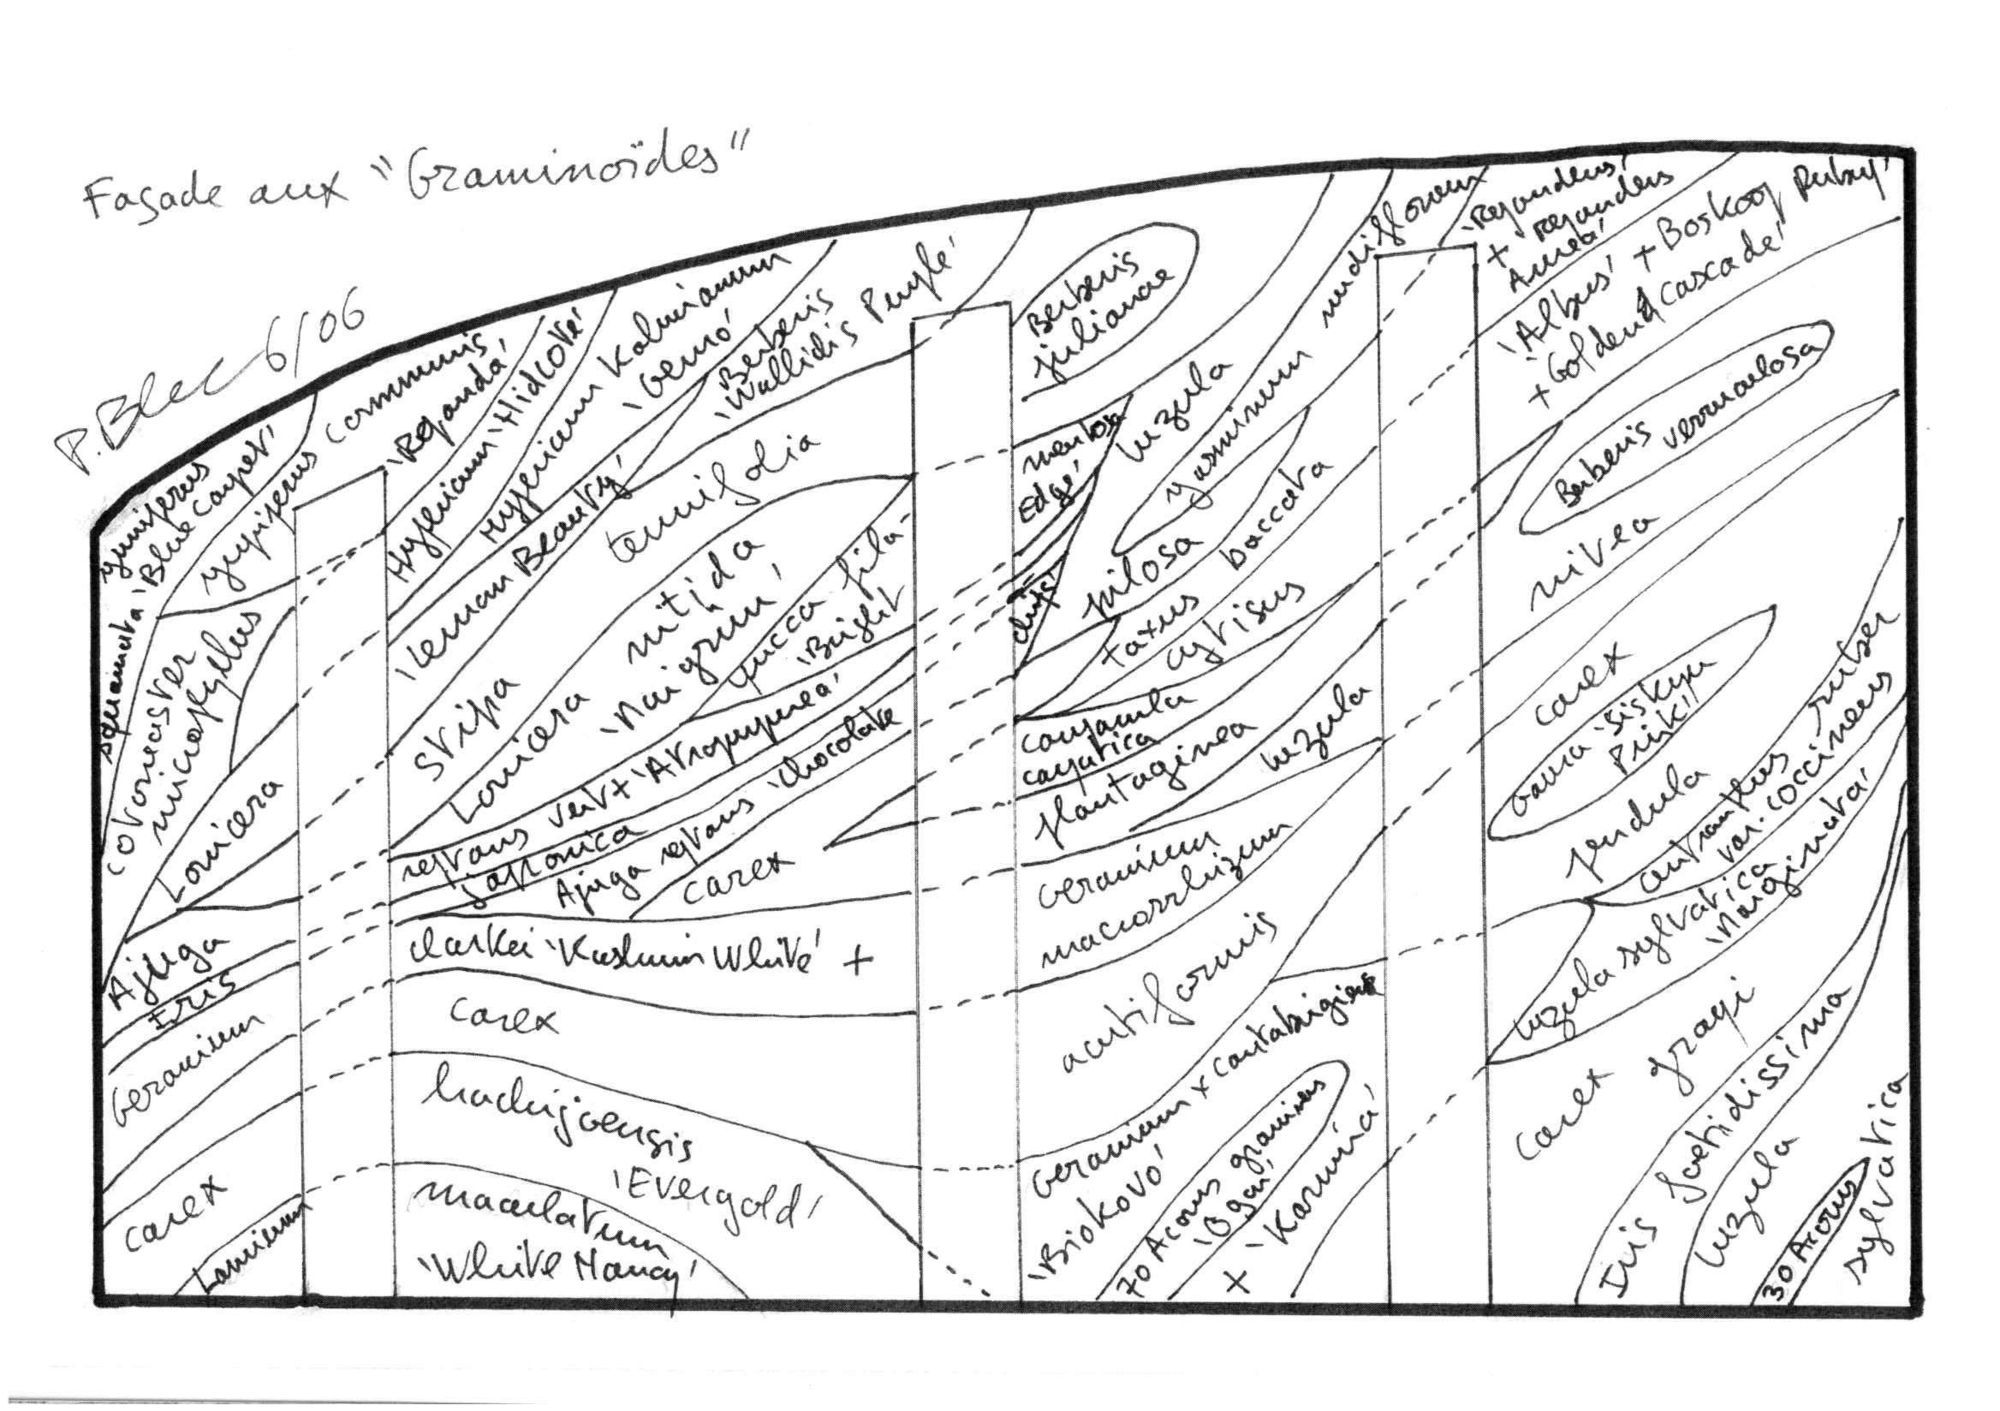 Façade aux "Graminoïdes"
P. Blanc 6/06
Juniperus
squamata 'Blue Carpet'
Juniperus communis
'Repanda'
Hypericum 'Hidcote'
Hypericum Kalmianum
'Gemo'
Berberis
'Wallichs Purple'
Cotoneaster
microphyllus
Lonicera
'Lemon Beauty'
Stipa
tenuifolia
Lonicera
nitida
'Maigrun'
Yucca fila-
'Bright
mentosa
Edge'
Ajuga
reptans vert + 'Atropurpurea'
Iris
japonica
Ajuga reptans 'Chocolate
chips'
carex
plantaginea
Geranium
clarkei 'Kashmir White' +
Geranium
macorrhizum
carex
acutiformis
carex
hachijoensis
'Evergold'
Lamium
maculatum
'White Nancy'
Berberis
julianae
Luzula
pilosa
Jasminum
nudiflorum
taxus
baccata
'Repandens'
+ 'Repandens
Aurea'
cytisus
'Albus' + Boskoop Ruby'
+ 'Golden Cascade'
campanula
carpatica
Luzula
nivea
Berberis verruculosa
carex
pendula
Gaura 'Siskyou
Pink'
centranthus ruber
var. coccineus
Luzula sylvatica
'Marginata'
Geranium x cantabrigiense
'Biokovo'
+ 'Karmina'
70 Acorus gramineus
'Ogon'
carex grayi
Iris foetidissima
Luzula
sylvatica
30 Acorus